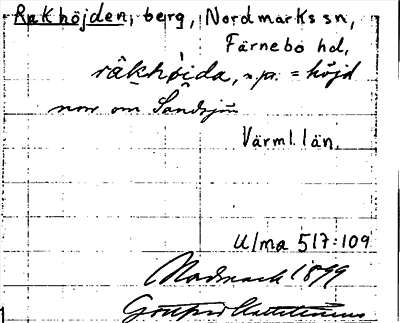 Rakhöjden, berg, Nordmarks sn,
Färnebo hd,
råkhöida, np. = höjd
norr om Sandsjön
Värml. län.
Ulma 517:109
Nordmark 1899
Gottfrid Kallstenius